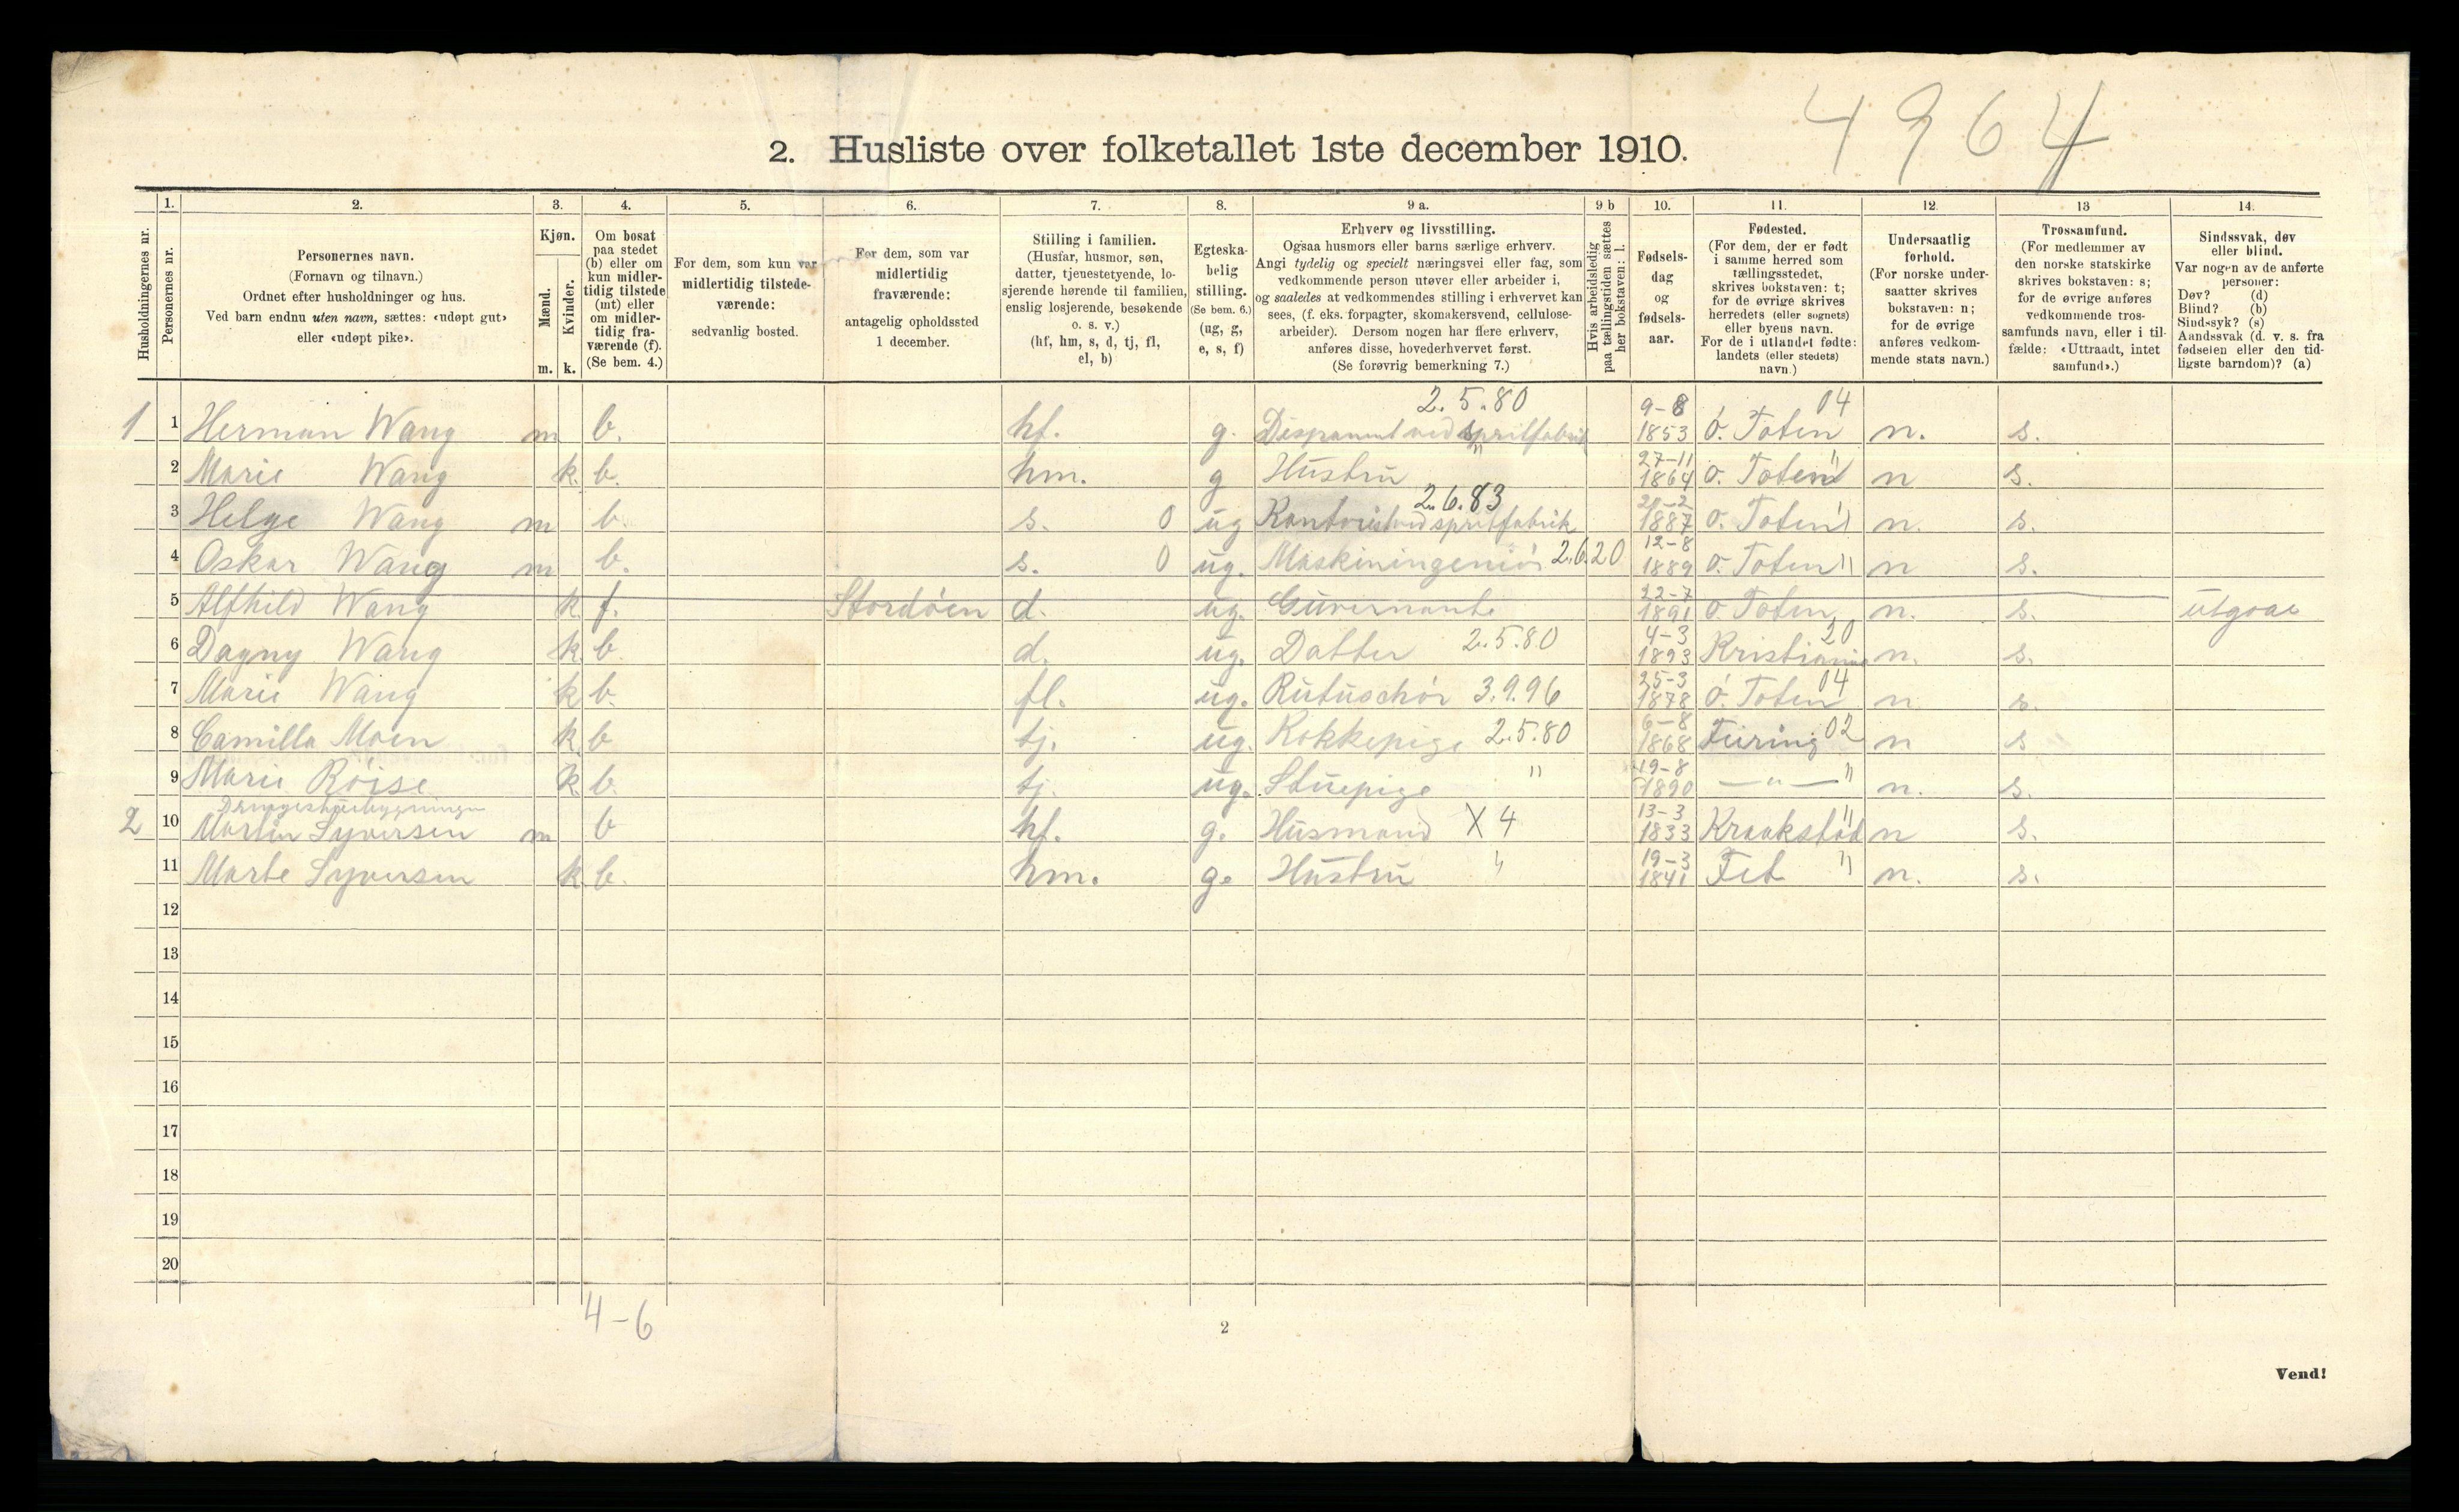 4964
2. Husliste over folketallet 1ste december 1910.
Husholdningernes nr.
1.
Personernes nr.
2.
Personernes navn.
(Fornavn og tilnavn.)
Ordnet efter husholdninger og hus.
Ved barn endnu uten navn, sættes: «udøpt gut»
eller «udøpt pike».
3.
Kjøn.
Mænd.
Kvinder.
m. k.
4.
Om bosat
paa stedet
(b) eller om
kun midler-
tidig tilstede
(mt) eller
om midler-
tidig fra-
værende (f).
(Se bem. 4.)
5.
For dem, som kun var
midlertidig tilstede-
værende:
sedvanlig bosted.
6.
For dem, som var
midlertidig
fraværende:
antagelig opholdssted
1 december.
7.
Stilling i familien.
(Husfar, husmor, søn,
datter, tjenestetyende, lo-
sjerende hørende til familien,
enslig losjerende, besøkende
o. s. v.)
(hf, hm, s, d, tj, fl,
el, b)
8.
Egteska-
belig
stilling.
(Se bem. 6.)
(ug, g,
e, s, f)
9 a.
Erhverv og livsstilling.
Ogsaa husmors eller barns særlige erhverv.
Angi tydelig og specielt næringsvei eller fag, som
vedkommende person utøver eller arbeider i,
og saaledes at vedkommendes stilling i erhvervet kan
sees, (f. eks. forpagter, skomakersvend, cellulose-
arbeider). Dersom nogen har flere erhverv,
anføres disse, hovederhvervet først.
(Se forøvrig bemerkning 7.)
9 b
Hvis arbeidsledig
paa tællingstiden sættes
her bokstaven: l.
10.
Fødsels-
dag
og
fødsels-
aar.
11.
Fødested.
(For dem, der er født
i samme herred som
tællingsstedet,
skrives bokstaven: t;
for de øvrige skrives
herredets (eller sognets)
eller byens navn.
For de i utlandet fødte:
landets (eller stedets)
navn.)
12.
Undersaatlig
forhold.
(For norske under-
saatter skrives
bokstaven: n;
for de øvrige
anføres vedkom-
mende stats navn.)
13
Trossamfund.
(For medlemmer av
den norske statskirke
skrives bokstaven: s;
for de øvrige anføres
vedkommende tros-
samfunds navn, eller i til-
fælde: «Uttraadt, intet
samfund».)
14.
Sindssvak, døv
eller blind.
Var nogen av de anførte
personer:
Døv? (d)
Blind? (b)
Sindssyk? (s)
Aandssvak (d. v. s. fra
fødselen eller den tid-
ligste barndom)? (a)
1 1 Herman Wang m b. hf. g. ved spritfabrik 2.5.80 9-8 1853 ö. Toten 04 n. s.
2 Marie Wang k. b. hm. g Hustru " 27-11 1864 ö. Toten " n s.
3 Helge Wang m b. s. 0 ug Kontorist ved spritfabrik 2.6.83 1887 ö. Toten " n. s.
4 Oskar Wang m b. s. 0 ug. Maskiningeniör 2.6.20 12-8 1889 ö. Toten " n s.
5 Alfhild Wang k. f. Stordöen d. ug. Guvernante 22-7 1891 ö. Toten n. s. utgaar
6 Dagny Wang k. b. d. ug. Datter 2.5.80 4-3 1893 Kristiania 20 n. s.
7 Marie Wang k b. fl. ug. 3.9.96 25-3 1878 ö. Toten 04 n s.
8 Camilla Moen k. b tj. ug. Kokkepige 2.5.80 6-8 1868 Feiring 02 n s
9 Marie Röise k. b. tj. ug. Stuepige " 19-8 1890 — " — " n. s.
2 10 Martin Syversen m b hf. g. Husmand X 4 13-3 1833 Kraakstad " n s.
11 Marte Syversen k b. hm. g. Hustru " 19-3 1841 Fet " n. s.
12
13
14
15
16
17
18
19
20
4-6
2
Vend!